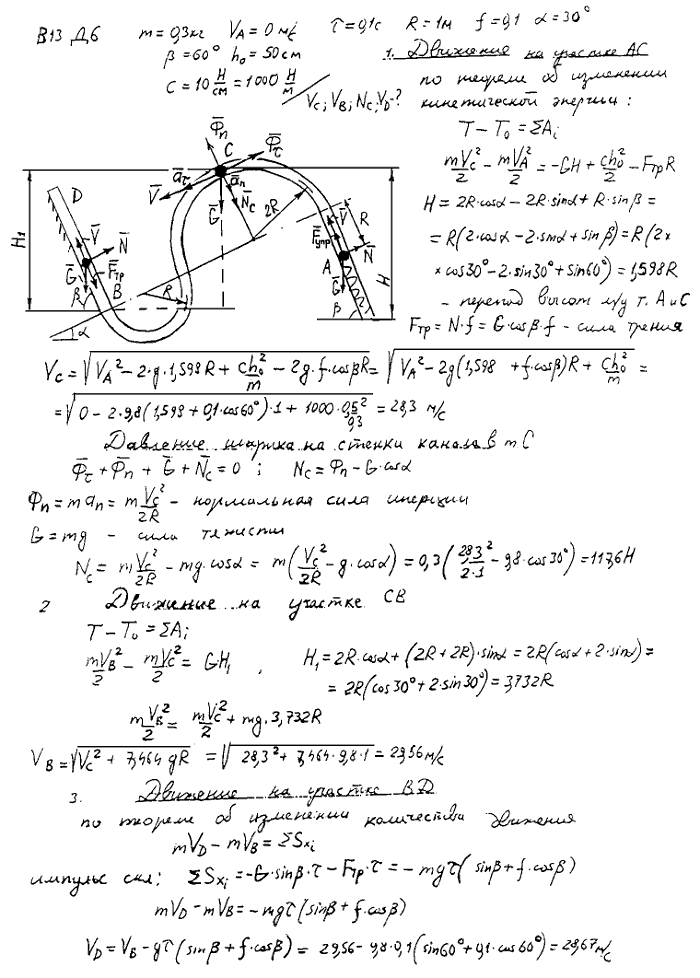 В13 Д6 m=0,3кг V_A=0 м/с τ=0,1с R=1м f=0,1 α=30°
β=60° h₀=50см
c=10 Н/см=1000 Н/м
V_C; V_B; N_C; V_D-?
1. Движение на участке АС
по теореме об изменении
кинетической энергии:
T-T₀=ΣA_i
mV_C²/2 - mV_A²/2 = -GH + ch₀²/2 - F_тр R
H=2R·cosα-2R·sinα+R·sinβ=
=R(2·cosα-2·sinα+sinβ)=R(2×
×cos30°-2·sin30°+sin60°)=1,598R
- перепад высот м/у т. А и С
F_тр=N·f=G·cosβ·f - сила трения
Φ̄_n C Φ̄_τ
ā_τ ā_n
V̄ N̄_C
Ḡ 2R
D H₁ V̄ N̄ Ḡ F̄_тр β B R α
V̄ R F̄_упр N̄ A Ḡ β H
V_C=√(V_A²-2·g·1,598R+ch₀²/m-2g·f·cosβR)=√(V_A²-2g(1,598+f·cosβ)R+ch₀²/m)=
=√(0-2·9,8(1,598+0,1·cos60°)·1+1000·0,5²/0,3)=28,3 м/с
Давление шарика на стенки канала в т С
Φ̄_τ+Φ̄_n+Ḡ+N̄_C=0; N_C=Φ_n-G·cosα
Φ_n=ma_n=mV_C²/2R - нормальная сила инерции
G=mg - сила тяжести
N_C=mV_C²/2R-mg·cosα=m(V_C²/2R-g·cosα)=0,3(28,3²/2·1-9,8·cos30°)=117,6Н
2 Движение на участке СВ
T-T₀=ΣA_i
mV_B²/2-mV_C²/2=GH₁, H₁=2R·cosα+(2R+2R)·sinα=2R(cosα+2·sinα)=
=2R(cos30°+2·sin30°)=3,732R
mV_B²/2=mV_C²/2+mg·3,732R
V_B=√(V_C²+7,464gR)=√(28,3²+7,464·9,8·1)=29,56м/с
3. Движение на участке BD
по теореме об изменении количества движения
mV_D-mV_B=ΣSx_i
импульс сил; ΣSx_i=-G·sinβ·τ-F_тр·τ=-mgτ(sinβ+f·cosβ)
mV_D-mV_B=-mgτ(sinβ+f·cosβ)
V_D=V_B-gτ(sinβ+f·cosβ)=29,56-9,8·0,1(sin60°+0,1·cos60°)=28,67м/с